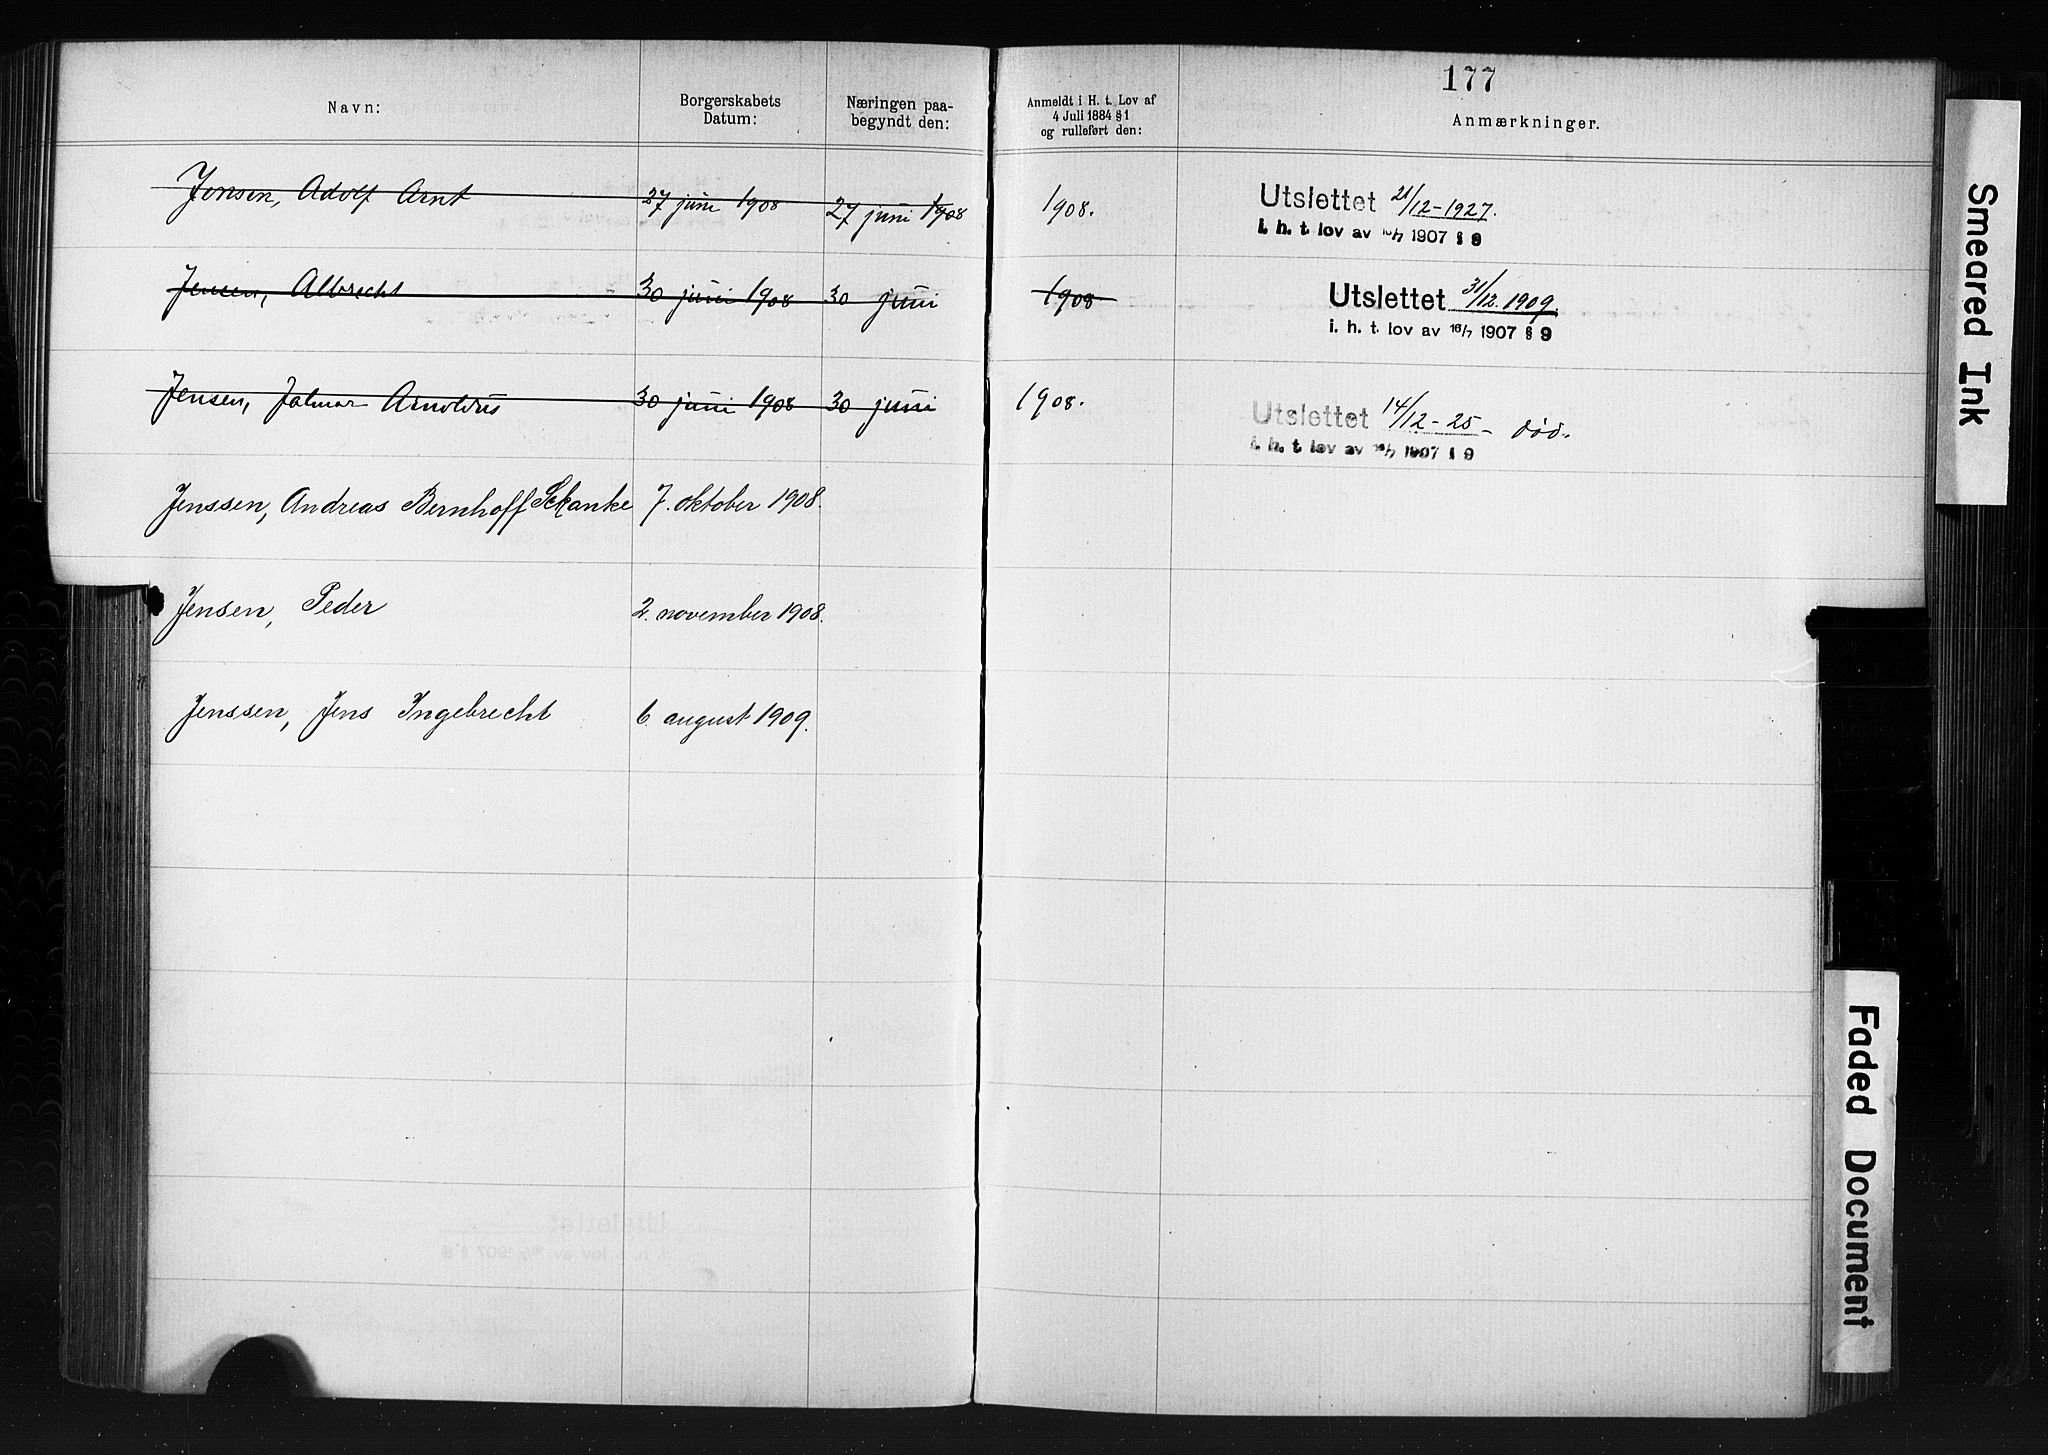 177
Navn:
Borgerskabets Datum:
Næringen paa-
begyndt den:
Anmeldt i H. t. Lov af
4 Juli 1884 § 1
og rulleført den:
Anmærkninger.
Jensen, Adolf Arnt 27 juni 1908 27 juni 1908 1908. Utslettet 21/12-1927.
i. h. t. lov av 16/7 1907 § 9
Jensen, Albrecht 30 juni 1908 30 juni 1908 Utslettet 31/12. 1909.
i. h. t. lov av 16/7 1907 § 9
Jensen, Jalmar Arnoldus 30 juni 1908 30 juni 1908. Utslettet 14/12-25- død.
i. h. t. lov av 16/7 1907 § 9
Jenssen, Andreas Bernhoff Schanke 7. oktober 1908.
Jensen, Peder 2. november 1908.
Jenssen, Jens Ingebrecht 6. august 1909.
Smeared Ink
Faded Document